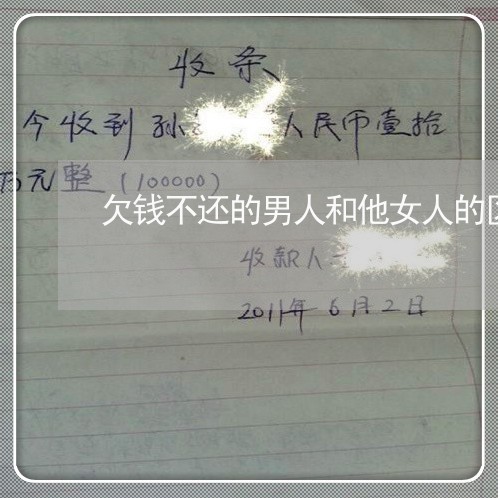 收条
今收到孙 人民币壹拾
万元整(100000)
欠钱不还的男人和他女人的
收款人
2011年6月2日